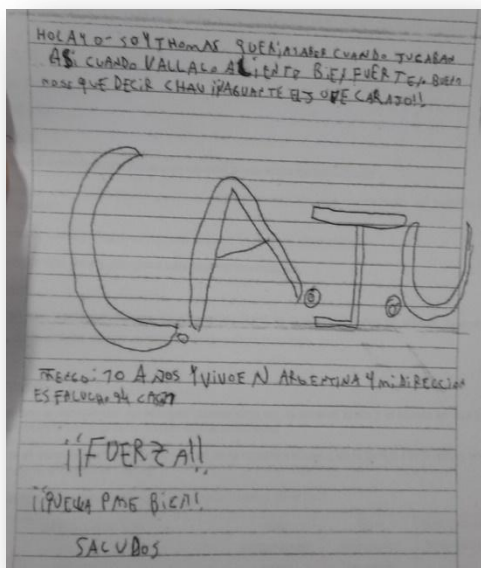 HOLA YO-SOY THOMAS QUERIA SABER CUANDO JUGARAN
ASI CUANDO VALLA LO ALIENTO BIEN FUERTE. BUEN
NOSE QUE DECIR CHAU AGUANTE EL JUVE CARAJO!!
C.A.J.U
TENGO: 10 AÑOS Y VIVO EN ARGENTINA Y MI DIRECCION
ES
¡¡FUERZA!!
BIEN!!
SALUDOS